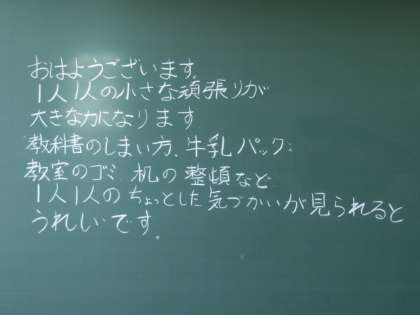 おはようございます。
1人1人の小さな頑張りが
大きな力になります
教科書のしまい方、牛乳パック、
教室のゴミ、机の整頓など
1人1人のちょっとした気づかいが見られると
うれしいです。